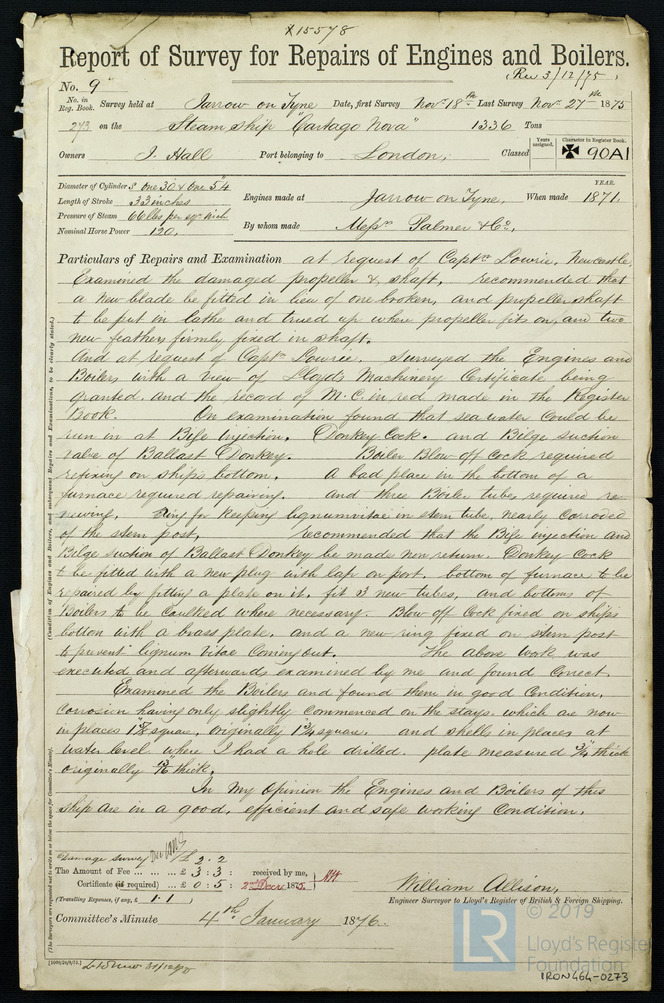 X15578
Report of Survey for Repairs of Engines and Boilers.
(Rec 3/12/75)
No. 9
No. in Reg. Book. Survey held at Jarrow on Tyne Date, first Survey Nov. 18th Last Survey Nov. 27th 1875
273 on the Steam ship "Cartago Nova" 1336 Tons
Owners J. Hall Port belonging to London, Classed Years assigned. Character in Register Book. 90A1
Diameter of Cylinders One 30 & One 54
Length of Stroke 33 inches
Pressure of Steam 66 lbs per sqr inch
Nominal Horse Power 120.
Engines made at Jarrow on Tyne, When made YEAR. 1871.
By whom made Messrs Palmer & Co.
Particulars of Repairs and Examination at request of Captn Lowrie, Newcastle,
Examined the damaged propeller & shaft, recommended that
a new blade be fitted in lieu of one broken, and propeller shaft
to be put in lathe and trued up where propeller fits on, and two
new feathers firmly fixed in shaft.
And at request of Captn Lowrie. Surveyed the Engines and
Boilers with a view of Lloyd's Machinery Certificate being
granted, and the record of M.C. in red made in the Register
Book. On examination found that sea water could be
run in at Bilge injection, Donkey Cock. and Bilge suction
valve of Ballast Donkey. Boiler Blow off cock required
refixing on ships bottom. A bad place in the bottom of a
furnace required repairing. And three Boiler tubes required re-
newing, Ring for keeping lignumvitae in stern tube, nearly corroded
of the stern post, recommended that the Bilge injection and
Bilge suction of Ballast Donkey be made non return. Donkey Cock
to be fitted with a new plug with lap on port, bottom of furnace to be
repaired by fitting a plate on it, fit 3 new tubes, and bottoms of
Boilers to be caulked where necessary. Blow off Cock fixed on ships
bottom with a brass plate, and a new ring fixed on stern post
to prevent lignum vitae coming out. The above work was
executed and afterwards examined by me and found correct.
Examined the Boilers and found them in good Condition,
corrosion having only slightly commenced on the stays which are now
in places square, originally 1 3/4 square, and shells in places at
water level where I had a hole drilled. plate measured 3/4 thick
originally 13/16 thick.
In my Opinion the Engines and Boilers of this
ship are in a good, efficient and safe working Condition.
(The Surveyors are requested not to write on or below the space for Committee's Minute.)
(Condition of Engines and Boilers, and subsequent Repairs and Examinations, to be clearly stated.)
Damage survey £2. 2
The Amount of Fee ... £ 3 : 3 : received by me,
Certificate (if required) ... £ 0 : 5 : 2nd Decr 1875
(Travelling Expenses, if any, £ 1.1 )
William Allison,
Engineer Surveyor to Lloyd's Register of British & Foreign Shipping.
Committee's Minute 4th January 1876.
LR © 2019
Lloyd's Register
Foundation
IRON464-0273